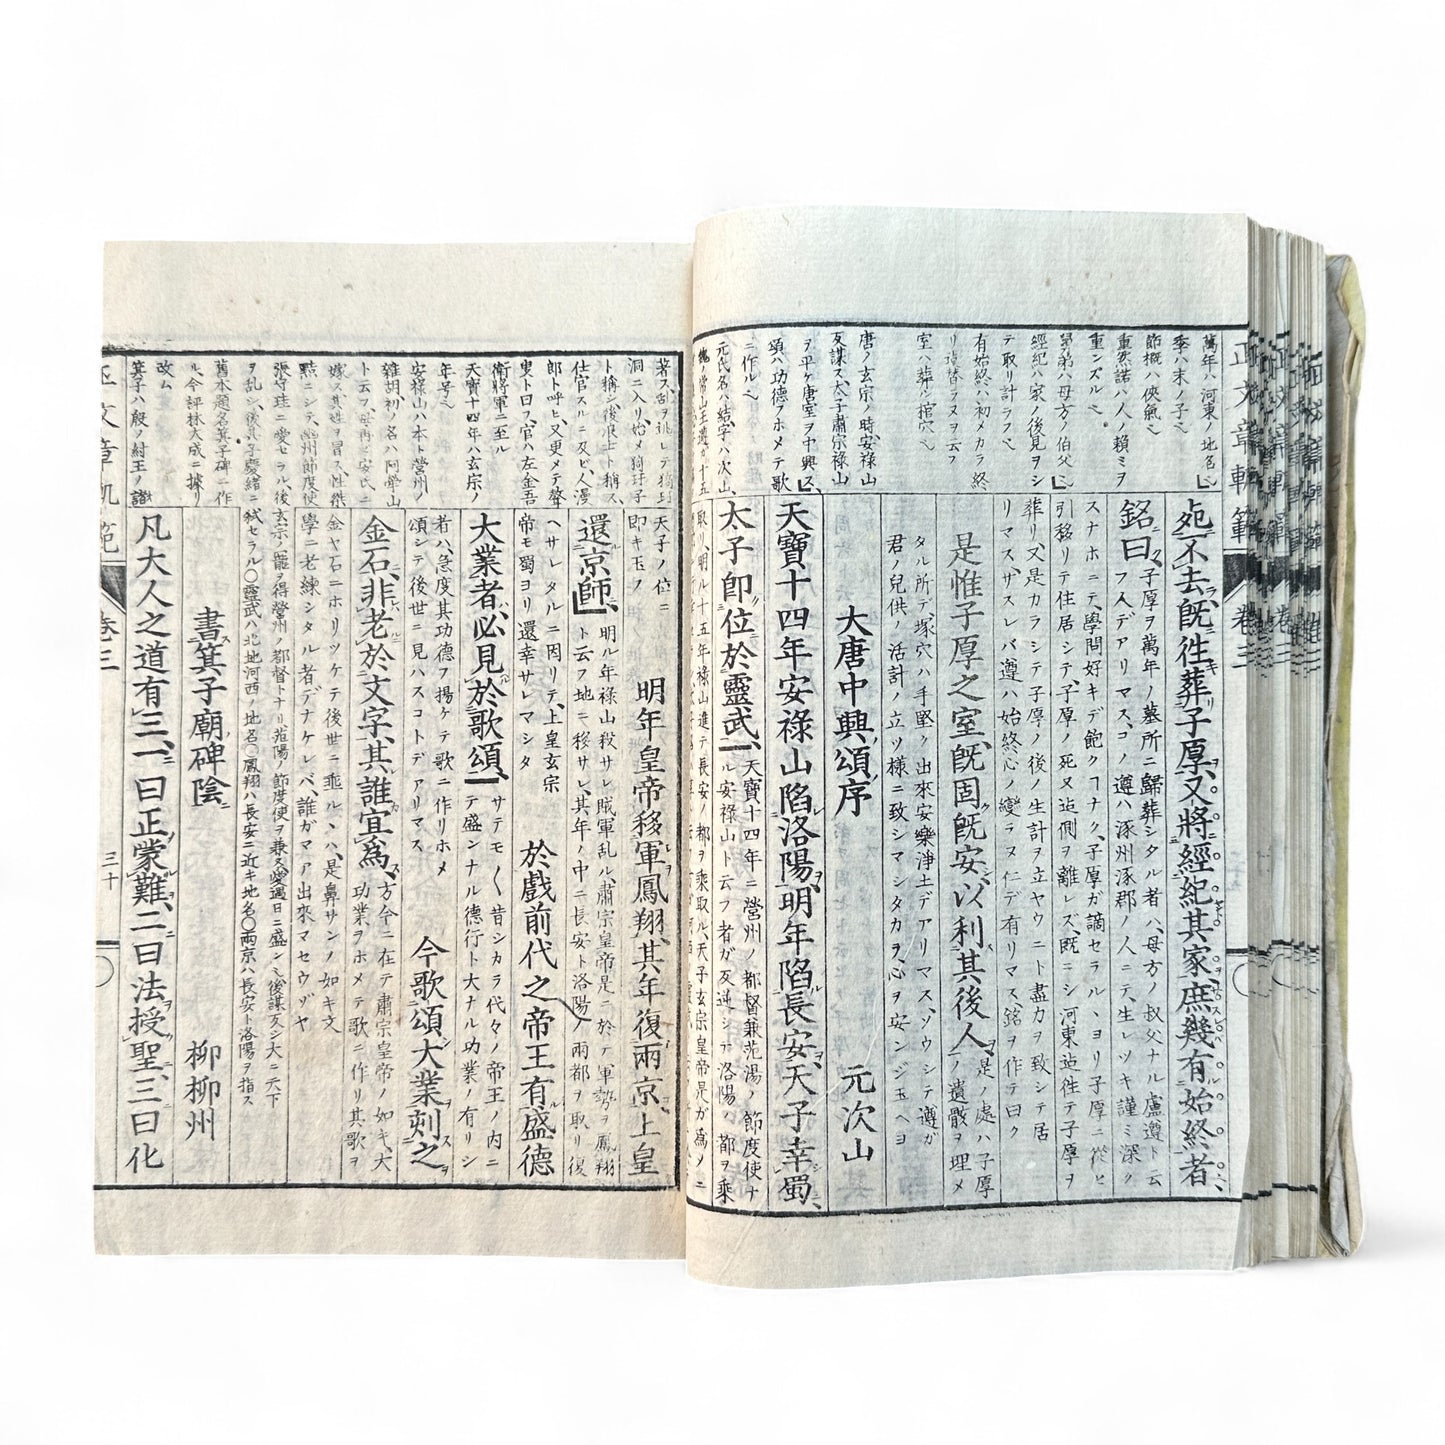 萬年ハ河東ノ地名
季ハ末ノ子
節概ハ俠氣
重然諾ハ人ノ賴ミヲ
重ンズル
舅弟ハ母方ノ伯父
經紀ハ家ノ後見ヲシ
テ取リ計ラフ
有始終ハ初メカラ終
室ハ葬ル棺穴
唐ノ玄宗ノ時、安祿山
反謀ス、太子肅宗祿山
ヲ平ケ唐室ヲ中興ス、
頌ハ功德ヲホメテ歌
ニ作ル
元氏名ハ結、字ハ次山、
死不去、既往葬子厚、又將經紀其家、庶幾有始終者、
子厚ヲ萬年ノ墓所ニ歸葬シタル者ハ、母方ノ叔父ナル盧遵ト云
銘曰
フ人デアリマス、コノ遵ハ涿州涿郡ノ人ニテ、生レツキ謹ミ深ク
スナホニテ、學問好キデ飽クヿナク、子厚ガ謫セラル、ヨリ子厚ニ從ヒ
引移リテ住居シテ、子厚ノ死又迠側ヲ離レズ、既ニシ河東迠往テ子厚ヲ
葬リ、又是カラシテ子厚ノ後ノ生計ヲ立ヤウニト盡力ヲ致シテ居
リマス、ザスレバ遵ハ始終心ノ變ラヌ仁デ有リマス、銘ヲ作テ曰ク
是惟子厚之室、既固既安、以利其後人、
是ノ處ハ子厚
ノ遺骸ヲ埋メ
タル所デ、塚穴ハ手堅ク出來安樂淨土デアリマス、ソウシテ遵ガ
君ノ兒供ノ活計ノ立ツ樣ニ致シマシタカラ、心ヲ安ンジ玉ヘヨ
大唐中興頌序　元次山
天寶十四年、安祿山陷洛陽、明年陷長安、天子幸蜀、
太子即位於靈武、
天寶十四年ニ營州ノ都督兼范陽ノ節度使ナ
ル安祿山ト云フ者ガ反逆シテ洛陽ノ都ヲ乘
取リ、明ル十五年祿山進テ長安ノ都ヲ乘取ル、天子玄宗皇帝是ガ爲メニ
著ス、乱ヲ逃レテ猗玗
洞ニ入リ、始メ猗玗子
ト稱シ、後浪士ト稱ス、
仕官スルニ及ビ、人漫
郎ト呼ヒ、又更メテ聲
叟ト曰フ、官ハ左金吾
衛將軍ニ至ル
天寶十四年ハ玄宗ノ
年号
安祿山ハ本ト營州ノ
雜胡、初ノ名ハ阿犖山
ト云フ、母再ニ安氏ニ
嫁ス、其姓ヲ冒ス、性桀
黠ニシテ、幽州節度使
張守珪ニ愛セラル、後
ヲ乱シ、後其子慶緒ニ
舊本題名箕子碑ニ作
ル、今評林大成ニ據リ
改ム
箕子ハ殷ノ紂王ノ諸
天子ノ位ニ
即キ玉ノ
明年皇帝移軍鳳翔、其年復兩京、上皇
還京師、
明ル年祿山殺サレ賊軍乱ル、肅宗皇帝是ニ於テ軍勢ヲ鳳翔
ト云フ地ニ移サレ、其年ノ中ニ長安ト洛陽ノ兩都ヲ取リ復
ヘサレタルニ因リテ、上皇玄宗
帝モ蜀ヨリ還幸サレマシタ
於戲前代之帝王有盛德
大業者、必見於歌頌、
サテモ〱昔シカラ代々ノ帝王ノ内ニ
テ盛ンナル德行ト大ナル功業ノ有リシ
者ハ、急度其功德ヲ揚ケテ歌ニ作リホメ
頌シテ後世ニ見ハスコトデアリマス
今歌頌大業、刻之
金石、非老於文字、其誰宜爲、
方今ニ在テ肅宗皇帝ノ如キ、大
功業ヲホメテ歌ニ作リ其歌ヲ
金ヤ石ニホリツケテ後世ニ垂ル、ハ、是鼻サンノ如キ文
學ニ老練シタル者デナケレバ、誰ガマア出來マセウゾヤ
玄宗ノ寵ヲ得營州ノ都督トナリ、范陽ノ節度使ヲ兼ヌ、愛遇日ニ盛ン、後謀反シ大ニ天下
弑セラル〇靈武ハ北地河西ノ地名〇鳳翔ハ長安ニ近キ地名〇兩京ハ長安ト洛陽ヲ指ス
書箕子廟碑陰　柳柳州
凡大人之道有三、一曰正蒙難、二曰法授聖、三曰化
正文章軌範　卷三
三十